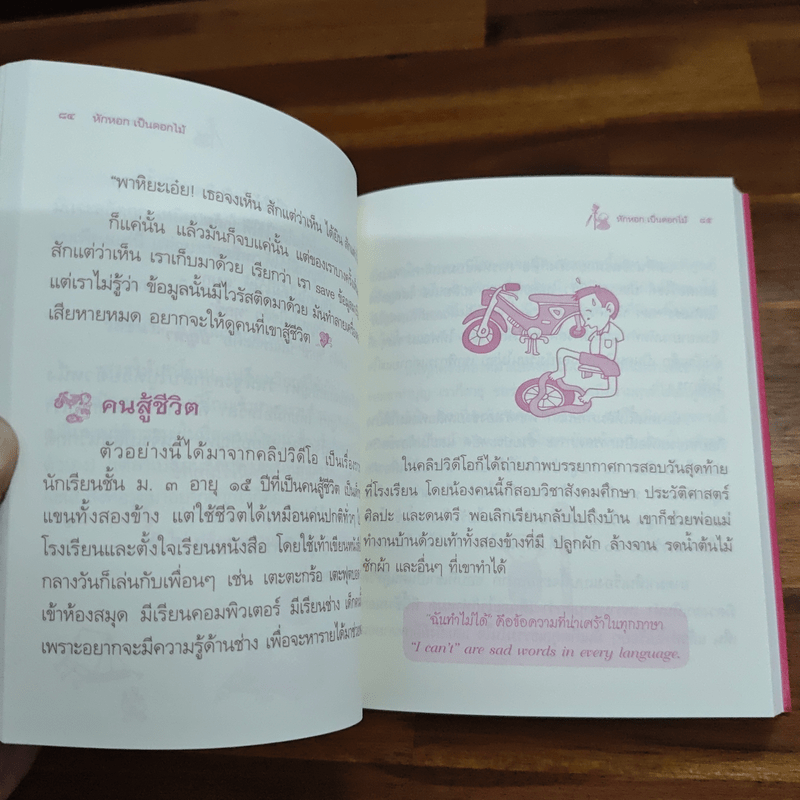 ๘๔ หักหอก เป็นดอกไม้
"พาหิยะเอ๋ย! เธอจงเห็น สักแต่ว่าเห็น ได้ยิน
ก็แค่นั้น แล้วมันก็จบแค่นั้น แต่ของเราบางครั้ง
สักแต่ว่าเห็น เราเก็บมาด้วย เรียกว่า เรา save ข้อมูล
แต่เราไม่รู้ว่า ข้อมูลนั้นมีไวรัสติดมาด้วย มันทำลาย
เสียหายหมด อยากจะให้ดูคนที่เขาสู้ชีวิต
คนสู้ชีวิต
ตัวอย่างนี้ได้มาจากคลิปวิดีโอ เป็นเรื่อง
นักเรียนชั้น ม. ๓ อายุ ๑๕ ปีที่เป็นคนสู้ชีวิต
แขนทั้งสองข้าง แต่ใช้ชีวิตได้เหมือนคนปกติ
โรงเรียนและตั้งใจเรียนหนังสือ โดยใช้เท้าเขียน
กลางวันก็เล่นกับเพื่อนๆ เช่น เตะตะกร้อ เตะฟุตบอล
เข้าห้องสมุด มีเรียนคอมพิวเตอร์ มีเรียนช่าง
เพราะอยากจะมีความรู้ด้านช่าง เพื่อจะหารายได้มา
หักหอก เป็นดอกไม้ ๘๕
ในคลิปวิดีโอก็ได้ถ่ายภาพบรรยากาศการสอบวันสุดท้าย
ที่โรงเรียน โดยน้องคนนี้ก็สอบวิชาสังคมศึกษา ประวัติศาสตร์
ศิลปะ และดนตรี พอเลิกเรียนกลับไปถึงบ้าน เขาก็ช่วยพ่อแม่
ทำงานบ้านด้วยเท้าทั้งสองข้างที่มี ปลูกผัก ล้างจาน รดน้ำต้นไม้
ซักผ้า และอื่นๆ ที่เขาทำได้
"ฉันทำไม่ได้" คือข้อความที่น่าเศร้าในทุกภาษา
"I can't" are sad words in every language.